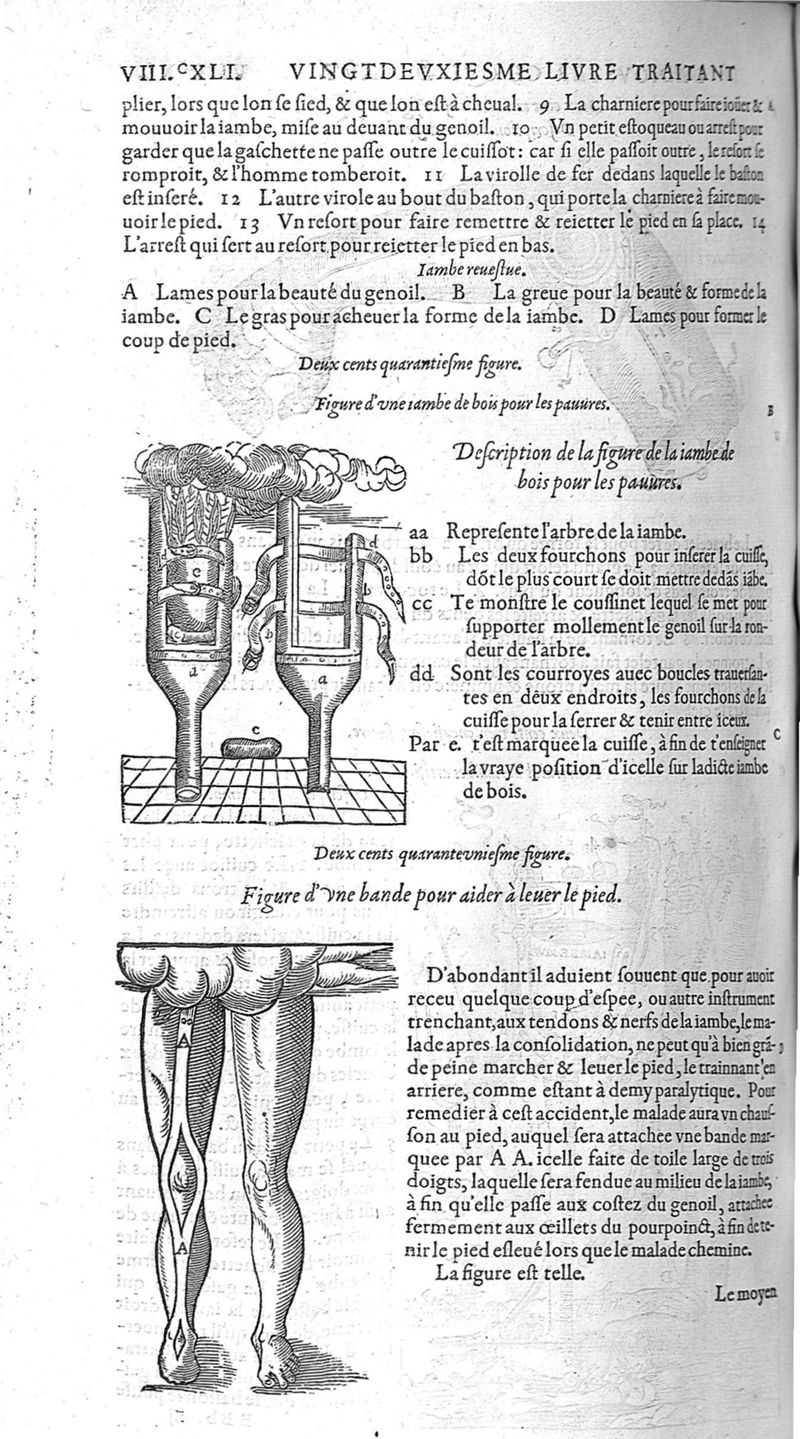 VIII.CXLI. VINGTDEVXIESME LIVRE TRAITANT
plier, lors que lon se sied, & que lon est à cheual. 9 La charniere pour faire ioüer &
mouuoir la iambe, mise au deuant du genoil. 10 Vn petit estoqueau ou arrest pour
garder que la gaschette ne passe outre le cuissot: car si elle passoit outre, le resort se
romproit, & l'homme tomberoit. 11 La virolle de fer dedans laquelle le baston
est inseré. 12 L'autre virole au bout du baston, qui porte la charniere à faire mou-
uoir le pied. 13 Vn resort pour faire remettre & reietter le pied en sa place. 14
L'arrest qui sert au resort pour reietter le pied en bas.
Iambe reuestue.
A Lames pour la beauté du genoil. B La greue pour la beauté & forme de la
iambe. C Le gras pour acheuer la forme de la iambe. D Lames pour former le
coup de pied.
Deux cents quarantiesme figure.
Figure d'vne iambe de bois pour les pauures.
B
Description de la figure de la iambe de
bois pour les pauures.
aa Represente l'arbre de la iambe.
bb Les deux fourchons pour inserer la cuisse,
dõt le plus court se doit mettre dedãs iãbe.
cc Te monstre le coussinet lequel se met pour
supporter mollement le genoil sur la ron-
deur de l'arbre.
dd Sont les courroyes auec boucles trauersan-
tes en deux endroits, les fourchons de la
cuisse pour la serrer & tenir entre iceux.
Par e. t'est marquee la cuisse, à fin de t'enseigner
la vraye position d'icelle sur ladicte iambe
de bois.
C
d
e
c
d
d
b
b
a
c
Deux cents quarantevniesme figure.
Figure d'vne bande pour aider à leuer le pied.
D'abondant il aduient souuent que pour auoir
receu quelque coup d'espee, ou autre instrument
trenchant, aux tendons & nerfs de la iambe, le ma-
lade apres la consolidation, ne peut qu'à bien grã-
de peine marcher & leuer le pied, le trainnant en
arriere, comme estant à demy paralytique. Pour
remedier à cest accident, le malade aura vn chaus-
son au pied, auquel sera attachee vne bande mar-
quee par A A. icelle faite de toile large de trois
doigts, laquelle sera fendue au milieu de la iambe,
à fin qu'elle passe aux costez du genoil, attachee
fermement aux œillets du pourpoinct, à fin de te-
nir le pied esleué lors que le malade chemine.
La figure est telle.
A
A
Le moyen